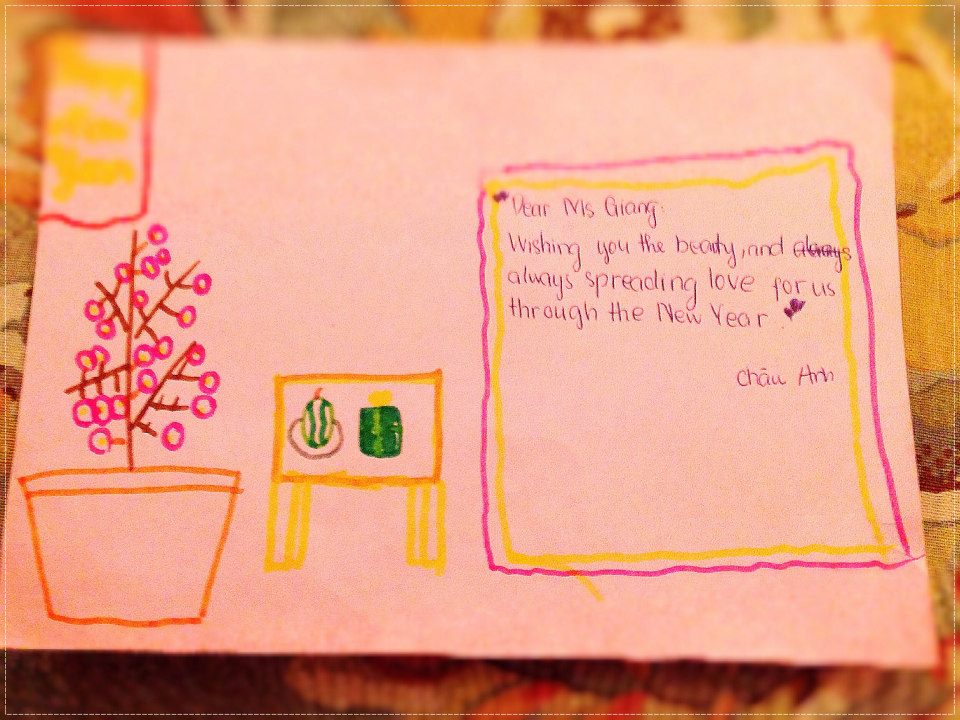 Dear Ms Giang.
Wishing you the beauty, and always
always spreading love for us
through the New Year.
Châu Anh